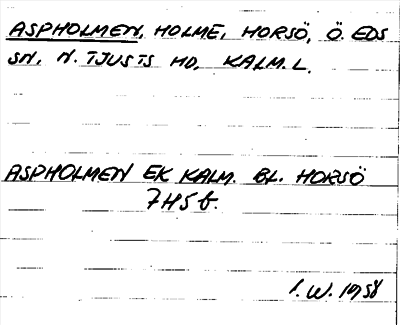 ASPHOLMEN, HOLME, HORSÖ, Ö. EDS
SN, N. TJUSTS HD, KALM. L.
ASPHOLMEN EK KALM. BL. HORSÖ
7H5b.
I. W. 1958